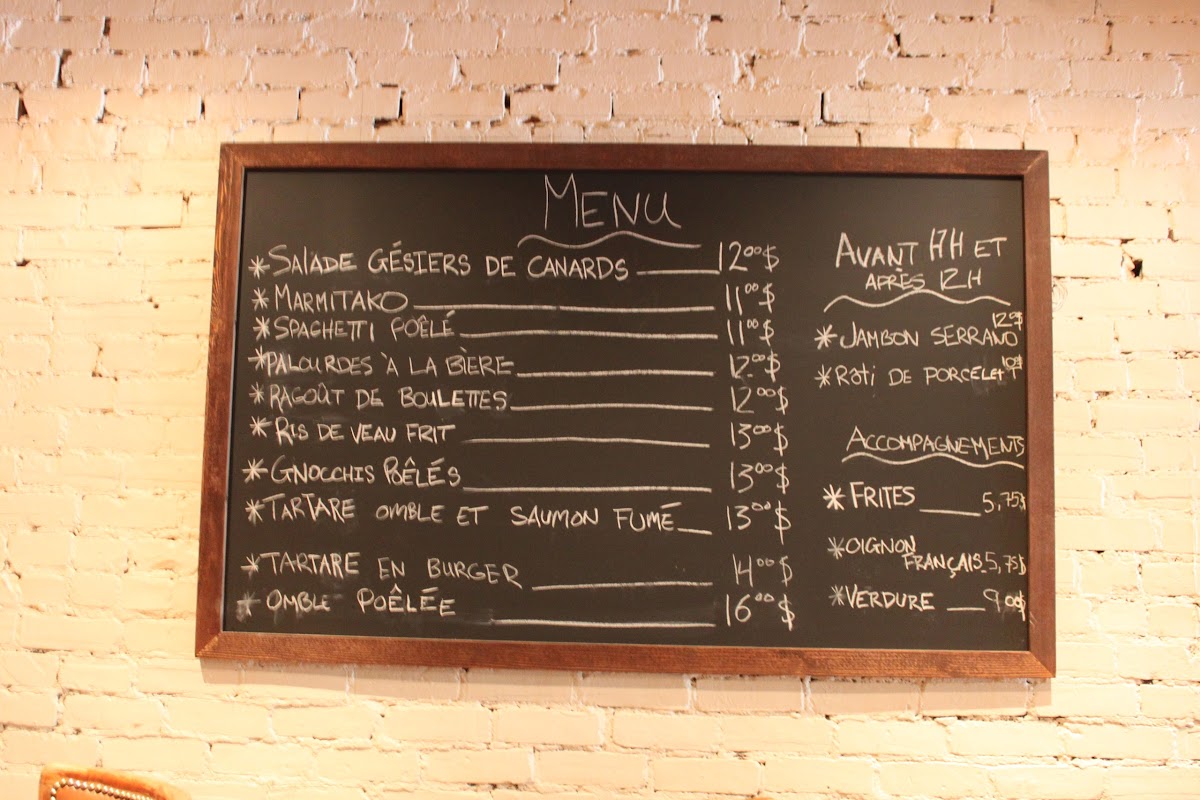 MENU
* SALADE GÉSIERS DE CANARDS 12⁰⁰$
* MARMITAKO 11⁰⁰$
* SPAGHETTI POÊLÉ 11⁰⁰$
* PALOURDES À LA BIÈRE 12⁰⁰$
* RAGOÛT DE BOULETTES 12⁰⁰$
* RIS DE VEAU FRIT 13⁰⁰$
* GNOCCHIS POÊLÉS 13⁰⁰$
* TARTARE OMBLE ET SAUMON FUMÉ 13⁰⁰$
* TARTARE EN BURGER 14⁰⁰$
* OMBLE POÊLÉE 16⁰⁰$
AVANT 17H ET
APRÈS 12H
12⁰⁰$
* JAMBON SERRANO
* RÔTI DE PORCELET
ACCOMPAGNEMENTS
* FRITES 5,75$
* OIGNON
FRANÇAIS 5,75$
* VERDURE 9,00$